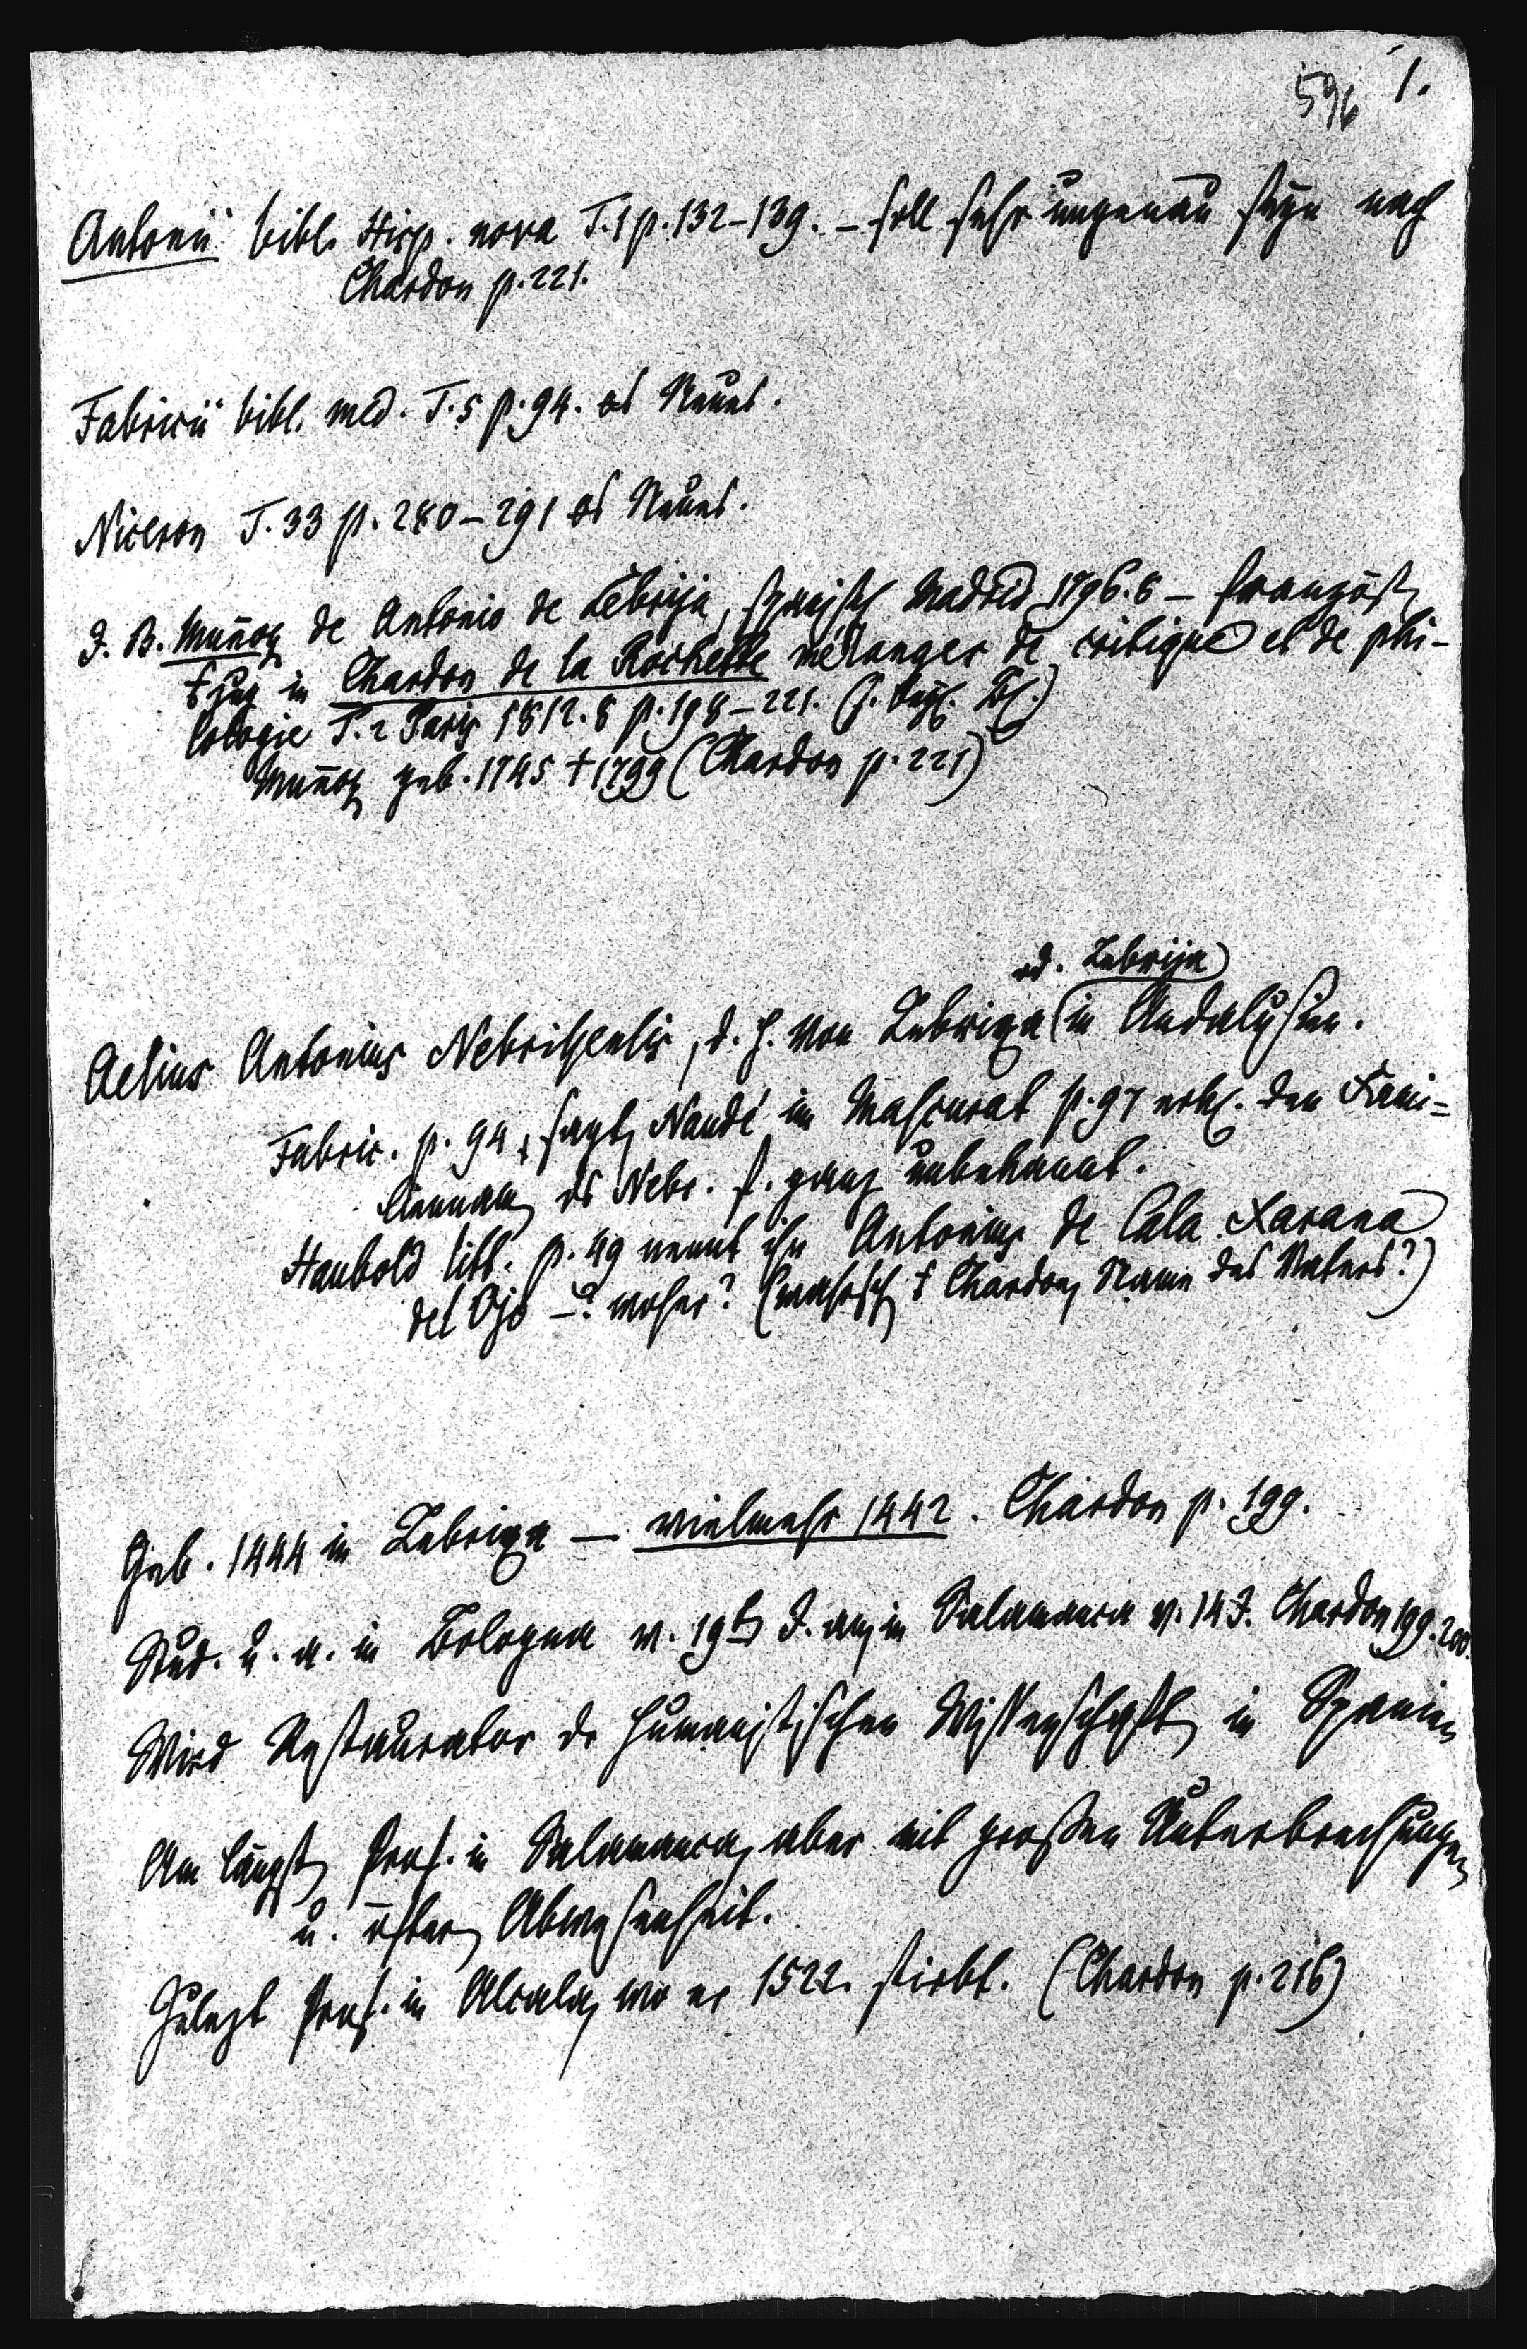 596 1.
Antonii bibl. Hisp. nova T. 1 p. 132–139. – soll sehr ungenau seyn nach
Chardon p. 221.
Fabricii bibl. med. T. 5 p. 94. Neues.
Niceron T. 33 p. 280–291 Neues.
J. B. Muñoz de Antonio de Lebrija, spanisch Madrid 1796. 8 – französisch
in Chardon de la Rochette mélanges de critique et de phi-
lologie T. 2 Paris 1812. 8 p. 198–221.
Muñoz geb. 1745 † 1799 (Chardon p. 221)
od. Lebrija)
Aelius Antonius Nebrissensis, d. h. von Lebrixa (in Andalusien.
Fabric. p. 94, sagt, Naudé im Mascurat p. 97 den Fami-
liennamen Nebr. s. ganz unbekannt.
Haubold litt. p. 49 nennt ihn Antonius de Cala Xarana
del Ojo –? woher? ( Chardon, Name des Vaters?)
Geb. 1444 in Lebrixa — vielmehr 1442. Chardon p. 199.
Stud. u. a. in Bologna v. 19t J. an, in Salamanca v. 14 J. Chardon 199. 200.
Wird Restaurator der humanistischen Wissenschaften in Spanien
Am längsten Prof. in Salamanca, aber mit großen Unterbrechungen
u. öfterer Abwesenheit.
Zulezt Prof. in Alcala, wo er 1522. stirbt. (Chardon p. 216)